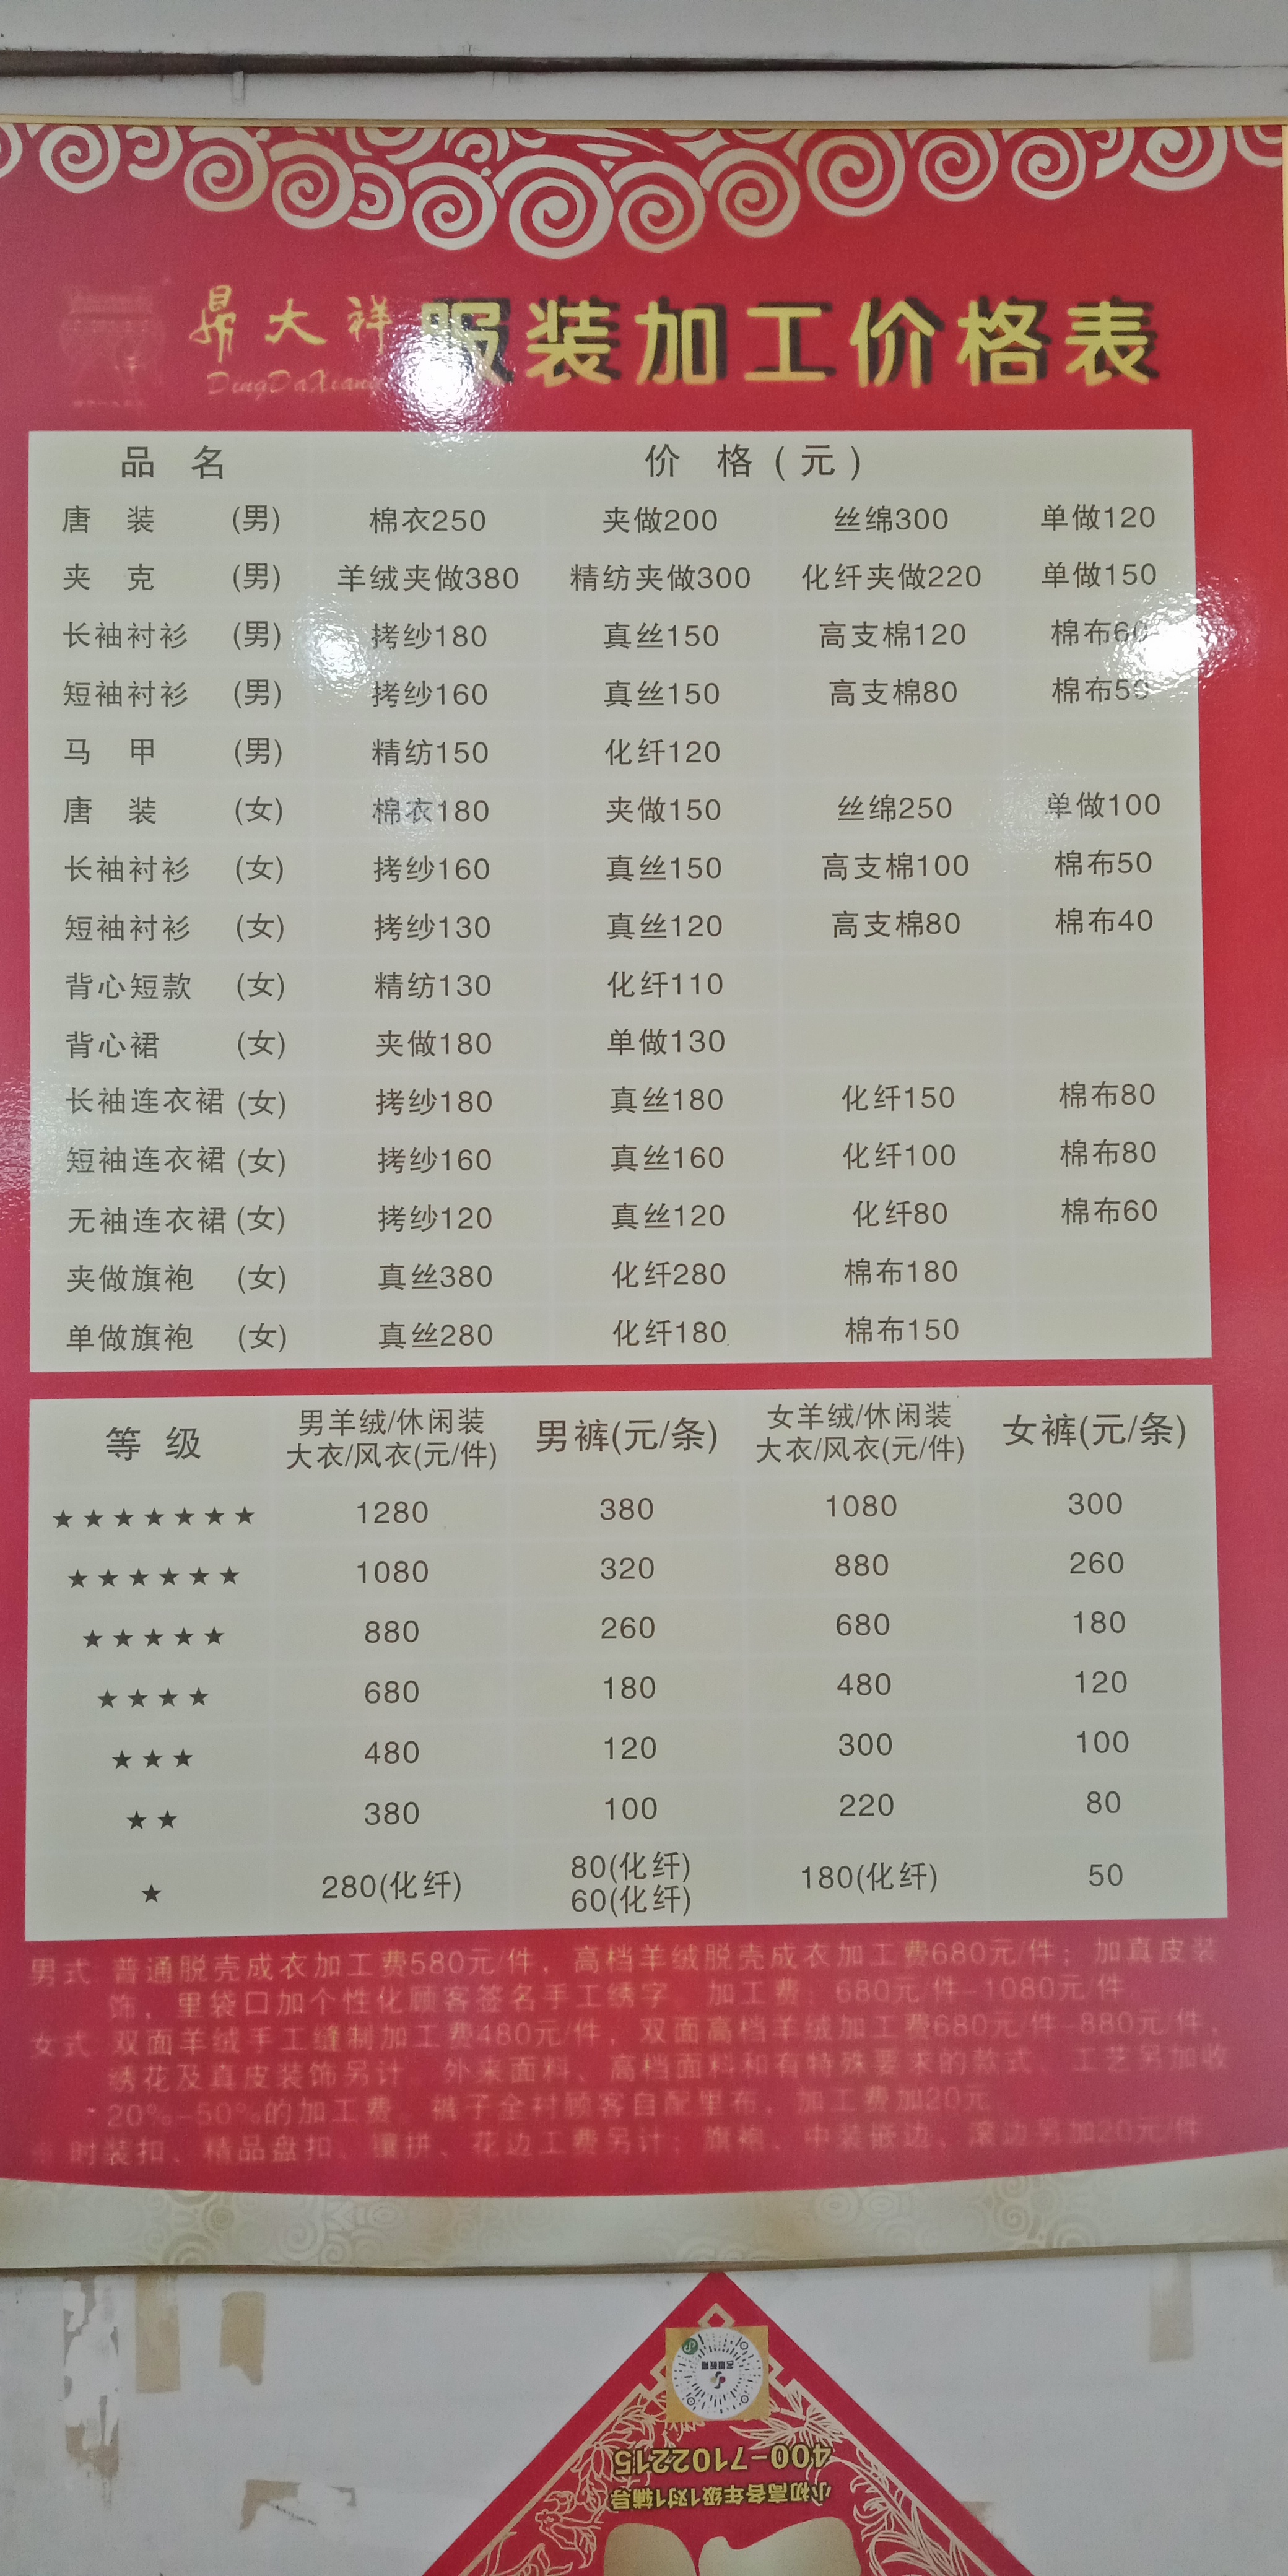 鼎大祥 服装加工价格表
DingDaXiang
品 名 价 格(元)
唐 装 (男) 棉衣250 夹做200 丝绵300 单做120
夹 克 (男) 羊绒夹做380 精纺夹做300 化纤夹做220 单做150
长袖衬衫 (男) 拷纱180 真丝150 高支棉120 棉布60
短袖衬衫 (男) 拷纱160 真丝150 高支棉80 棉布50
马 甲 (男) 精纺150 化纤120
唐 装 (女) 棉衣180 夹做150 丝绵250 单做100
长袖衬衫 (女) 拷纱160 真丝150 高支棉100 棉布50
短袖衬衫 (女) 拷纱130 真丝120 高支棉80 棉布40
背心短款 (女) 精纺130 化纤110
背心裙 (女) 夹做180 单做130
长袖连衣裙 (女) 拷纱180 真丝180 化纤150 棉布80
短袖连衣裙 (女) 拷纱160 真丝160 化纤100 棉布80
无袖连衣裙 (女) 拷纱120 真丝120 化纤80 棉布60
夹做旗袍 (女) 真丝380 化纤280 棉布180
单做旗袍 (女) 真丝280 化纤180 棉布150
等 级 男羊绒/休闲装 大衣/风衣(元/件) 男裤(元/条) 女羊绒/休闲装 大衣/风衣(元/件) 女裤(元/条)
★★★★★★★ 1280 380 1080 300
★★★★★★ 1080 320 880 260
★★★★★ 880 260 680 180
★★★★ 680 180 480 120
★★★ 480 120 300 100
★★ 380 100 220 80
★ 280(化纤) 80(化纤) 60(化纤) 180(化纤) 50
男式 普通脱壳成衣加工费580元/件，高档羊绒脱壳成衣加工费680元/件；加真皮装
饰，里袋口加个性化顾客签名手工绣字。加工费：680元/件-1080元/件。
女式 双面羊绒手工缝制加工费480元/件，双面高档羊绒加工费680元/件-880元/件，
绣花及真皮装饰另计。外来面料、高档面料和有特殊要求的款式、工艺另加收
20%-50%的加工费。裤子全衬顾客自配里布，加工费加20元。
※ 时装扣、精品盘扣、镶拼、花边工费另计；旗袍、中装嵌边、滚边另加20元/件
400-7102215
小初高各年级1对1辅导